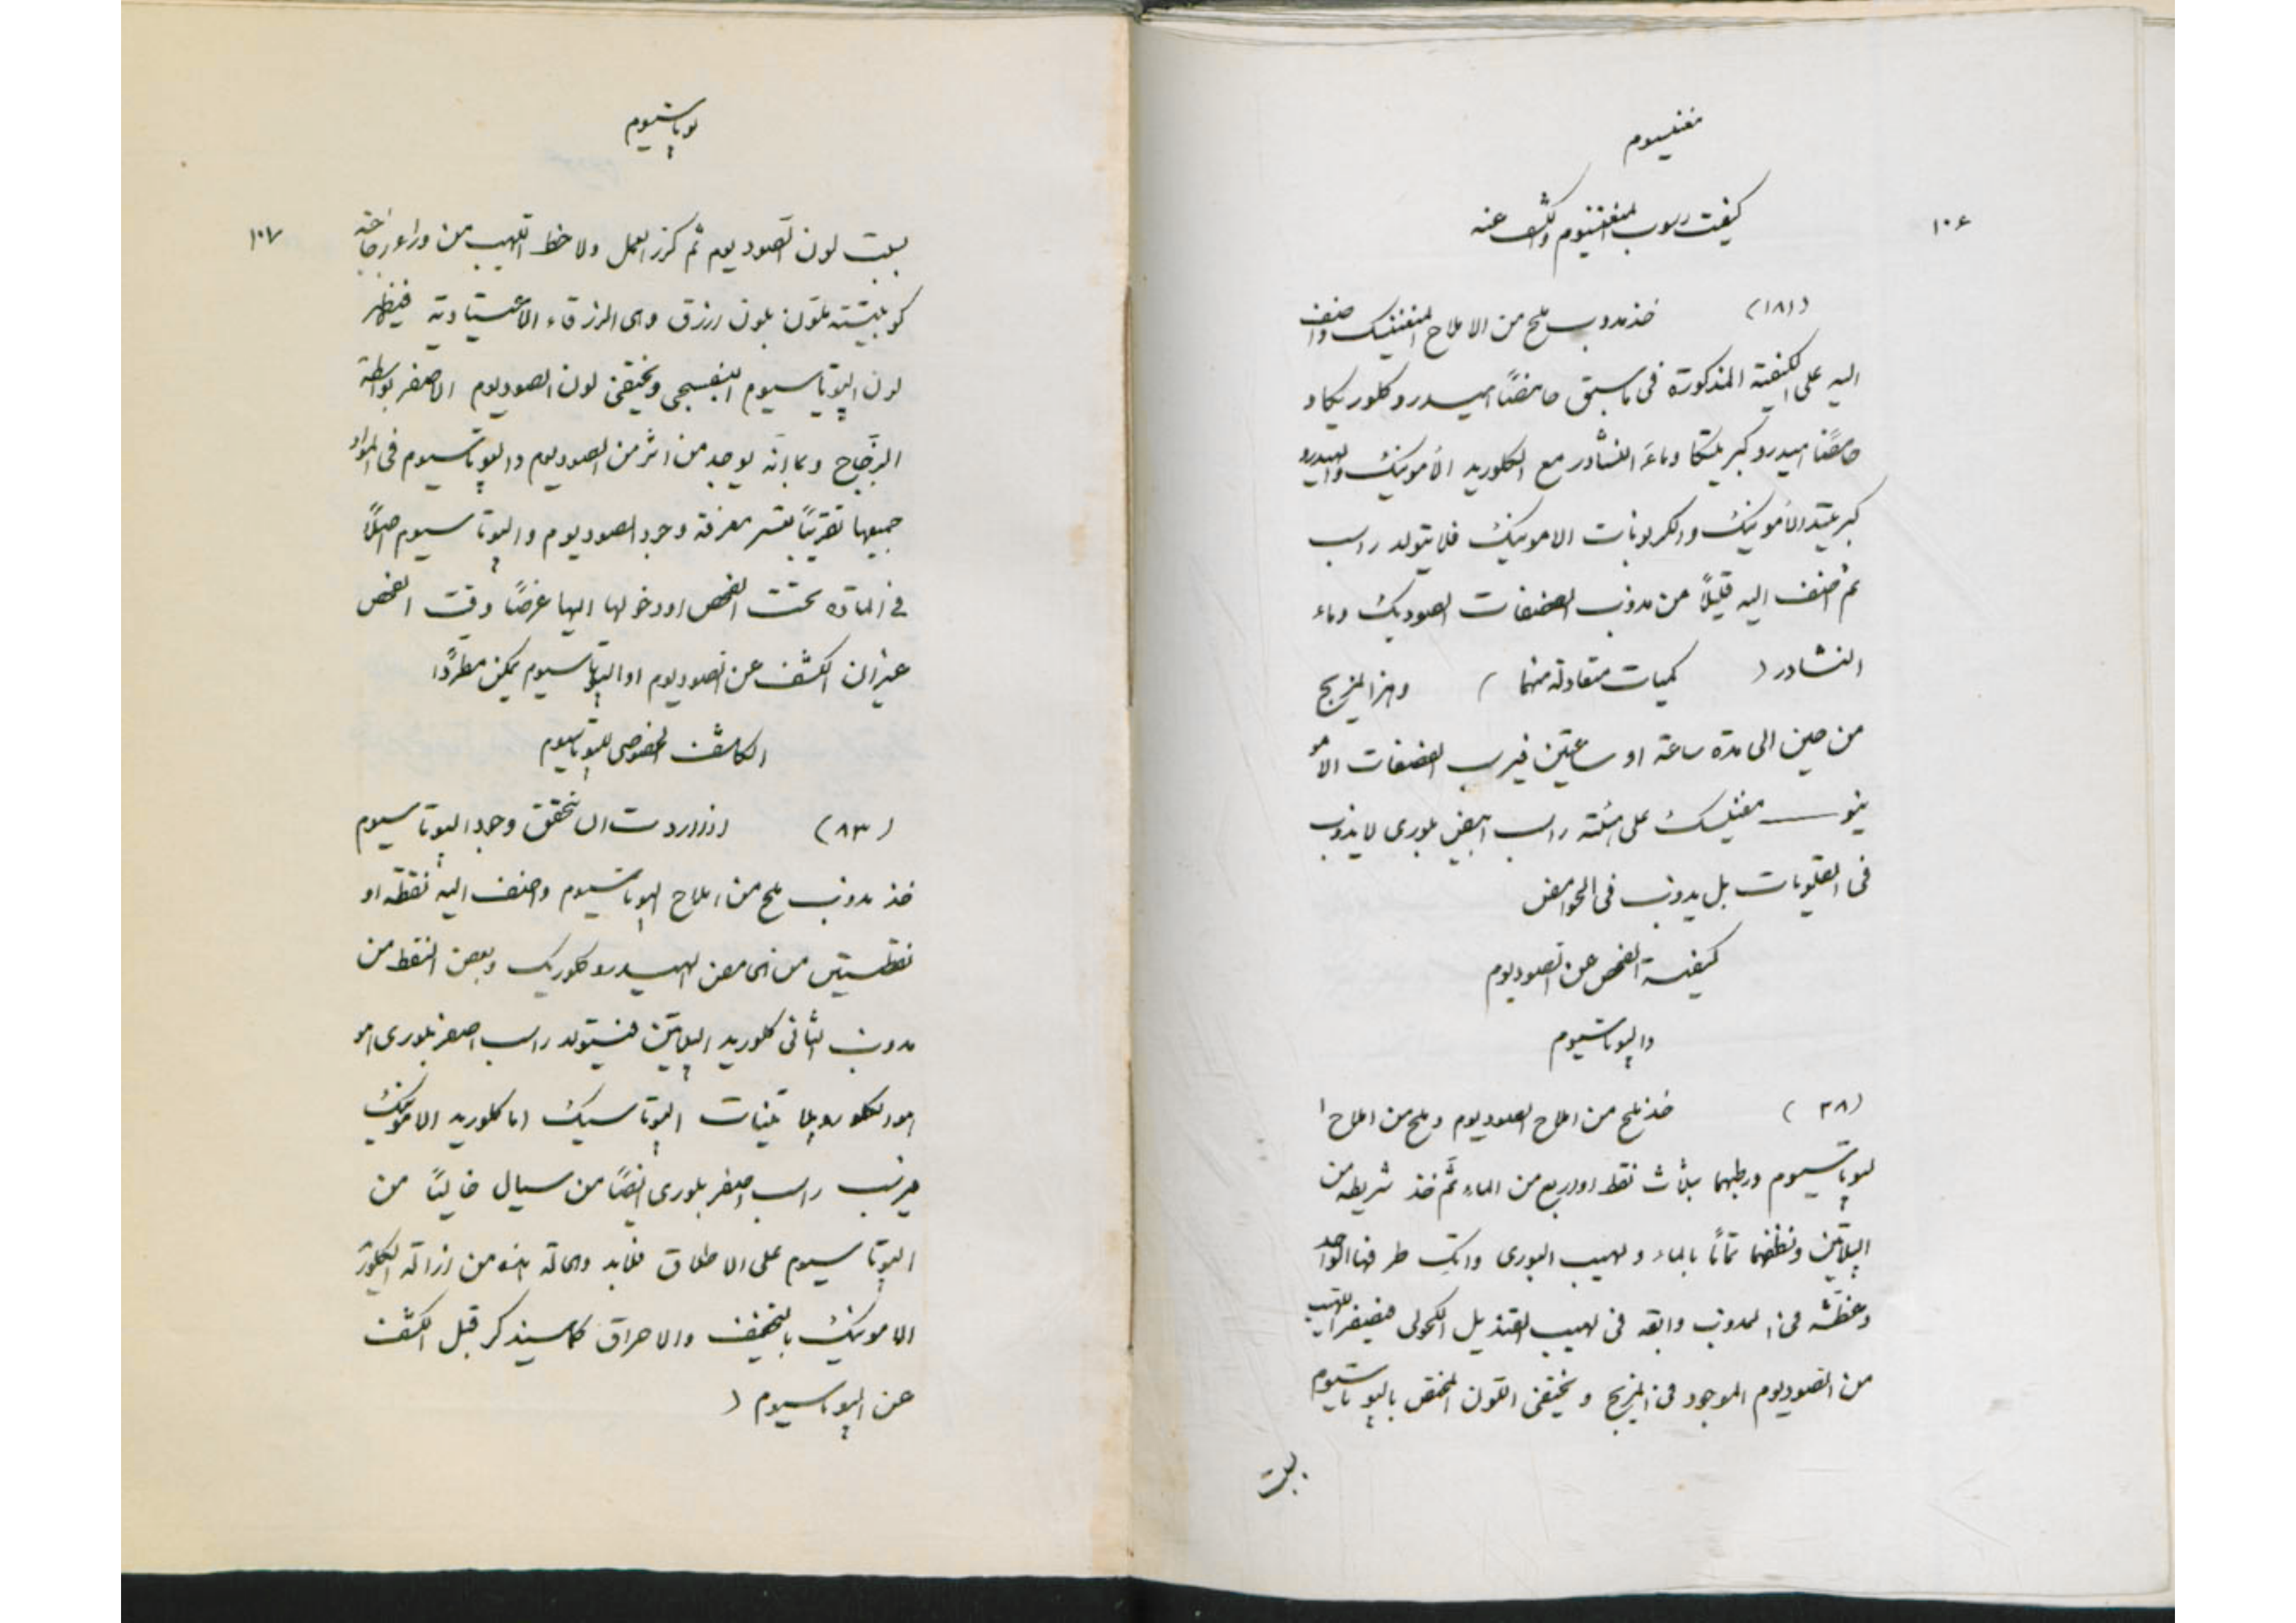 مغنسيوم
١٠٦
كيفيت رسوب المغنيزيوم والكشف عنه
(١٨١) خذ مذوب ملح من الاملاح المغنيسيك واضف
اليه على الكيفية المذكورة فى ما سبق حامضاً هيدروكلوريكا و
حامضاً هيدروكبريتيكا وماء النشادر مع الكلوريد الأمونيك والهيدرو
كبريتيد الأمونيك والكربونات الامونيك فلا يتولد راسب
ثم اضف اليه قليلاً من مذوب الفصفات الصوديك وماء
النشادر ( كميات متعادلة منهما ) وهز المزيج
من حين الى مدة ساعة او ساعتين فيرسب الفصفات الامو
نيو مغنيسيك على هيئة راسب ابيض بلورى لا يذوب
فى القلويات بل يذوب فى الحوامض
كيفية الفحص عن الصوديوم
والپوتاسيوم
(٣٨) خذ ملح من املاح الصوديوم وملح من املاح ا
لپوتاسيوم ورطبهما بثلاث نقط او اربع من الماء ثم خذ شريطه من
الپلاتين ونظفهما تماماً بالماء ولهيب البورى واتك طرفها الواحد
وغطسه فى المذوب وابقه فى لهيب القنديل الكحولى فيصفر اللهيب
من الصوديوم الموجود فى المزيج ويختفى اللون المختص بالپوتاسيوم
بسبب
پوتاسيوم
١٠٧
بسبب لون الصوديوم ثم كرر العمل ولاحظ اللهيب من وراء زجاجة
كوبلتية تلون بلون ازرق وهى الزرقاء الاعتيادية فيظهر
لون الپوتاسيوم البنفسجى ويختفى لون الصوديوم الاصفر بواسطة
الزجاج وبما انه يوجد من اثر من الصوديوم والپوتاسيوم فى المواد
جميعها تقريباً يعسر معرفة وجود الصوديوم والپوتاسيوم اصلاً
فى المادة تحت الفحص او دخولها اليها عرضاً وقت الفحص
غير ان الكشف عن الصوديوم او الپوتاسيوم يمكن مطرداً
الكاشف الخصوصى للپوتاسيوم
(٨٣) اذا اردت ان تحقق وجود الپوتاسيوم
خذ مذوب ملح من املاح الپوتاسيوم واضف اليه نقطة او
نقطتين من الحامض الهيدروكلوريك وبعض النقط من
مذوب الثانى كلوريد الپلاتين فيتولد راسب اصفر بلورى هو
الكلوروپلاتينات الپوتاسيك اما كلوريد الامونيك
فيرسب راسب اصفر بلورى ايضاً من سيال خالياً من
الپوتاسيوم على الاطلاق فلابد والحالة هذه من ازالة الكلوريد
الامونيك بالتجفيف والاحراق كما سيذكر قبل الكشف
عن الپوتاسيوم (